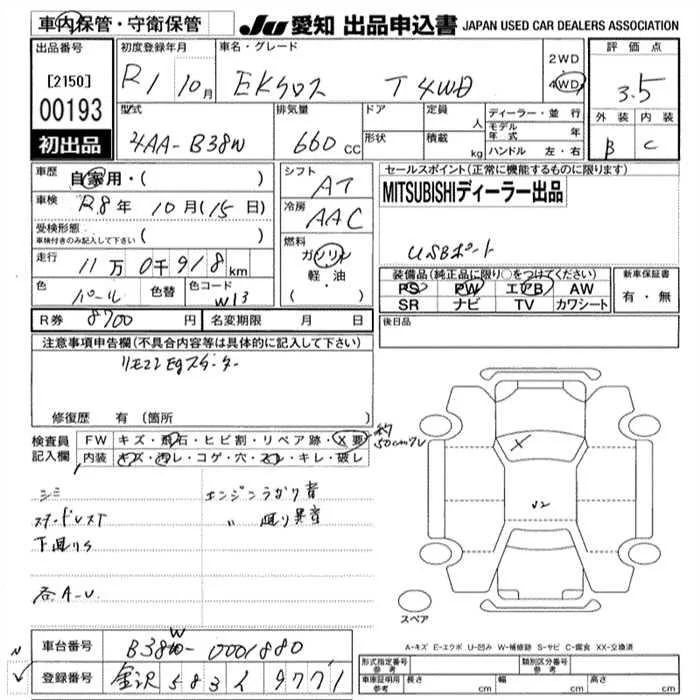 車内保管・守衛保管 JU 愛知 出品申込書 JAPAN USED CAR DEALERS ASSOCIATION
出品番号 初度登録年月 車名・グレード 2WD 評価点
[2150] R1 10月 EKクロス T 4WD 4WD 3.5
00193 型式 排気量 ドア 定員 人 ディーラー・並行 外装 内装
初出品 4AA-B38W 660cc 形状 積載 kg モデル年式 年 B C
ハンドル 左・右
車歴 自家用・( ) シフト AT セールスポイント(正常に機能するものに限ります)
車検 R8年 10月(15日) 冷房 AAC MITSUBISHIディーラー出品
受検形態 車検付きのみ記入して下さい ( ) 燃料 ガソリン USBポート
走行 11万0千918km 軽・油 装備品(純正品に限り○をつけてください) 新車保証書
( ・ ) PS PW エアB AW 有・無
色 パール 色替 色コード W13 SR ナビ TV カワシート
R券 8700円 名変期限 月 日 後日品
注意事項申告欄(不具合内容等は具体的に記入して下さい)
リモコンEgスターター
修復歴 有(箇所
検査員 FW キズ・飛石・ヒビ割・リペア跡・X要 約50cm
記入欄 内装 キズ・汚レ・コゲ・穴・スレ・キレ・破レ
シミ エンジンうなり音
スタッドレスT 〃 廻り異音
下廻りS
各A-U
X
U2
スペア
A-キズ E-エクボ U-凹み W-補修跡 S-サビ C-腐食 XX-交換済
車台番号 B38W-0001880
登録番号 金沢 583 え 9771
形式指定番号 参考 類別区分番号 参考
車庫証明用 参考 長さ cm 幅 cm 高さ cm